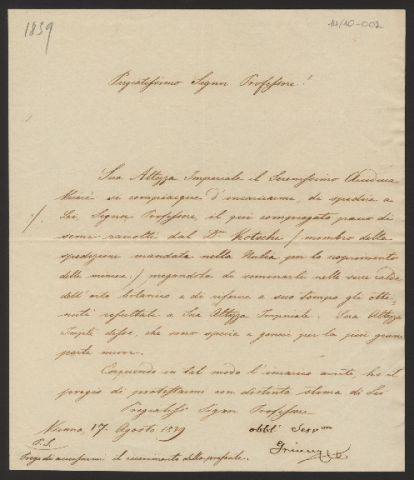 1839
11/10-002
Pregiatissimo Signor Professore!
Sua Altezza Imperiale il Serenissimo Arciduca
si compiacque d'incaricarmi, di spedire a
Lei Signor Professore, il qui compiegato pacco di
semi raccolti dal Dr Kotschi / membro della
spedizione mandata nella Nubia per lo scoprimento
delle miniere / pregandola di seminarli nelle serre calde
dell'orto botanico e di riferire a suo tempo gli otte-
nuti resultati a Sua Altezza Imperiale. Sua Altezza
Imple disse, che sono specie e generi per la più gran
parte nuove.
Eseguendo in tal modo l'incarico avuto, ho il
pregio di protestarmi con distinta stima di Lei
Pregiatissº Signor Professore
Vienna, 17. Agosto 1839
obbl Servm
P.S.
Prego di accusarmi il ricevimento della presente.